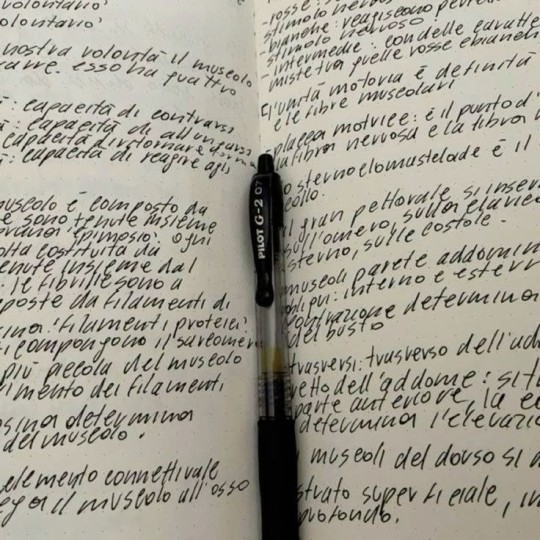 volontario
volontario
nostra volontà il muscolo
esso ha quattro
: capacità di contrarsi
: capacità di allungarsi
capacità di ritornare
: capacità di reagire agli
muscolo è composto da
e sono tenute insieme
epimisio. ogni
costituita da
tenute insieme dal
. le fibrille sono a
poste da filamenti di
. i filamenti proteici
compongono il sarcomero
più piccola del muscolo
dei filamenti
determina
del muscolo.
elemento connettivale
il muscolo all'osso
PILOT G-2 07
-rosse:
stimolo nervoso
-bianche: reagiscono
stimolo nervoso
-intermedie: con delle
miste tra quelle rosse e bianche
l'unità motoria è definita
e le fibre muscolari
placca motrice: è il punto d'
la fibra nervosa e la fibra
sternocleomastoideo è il
collo.
il gran pettorale si inser
sull'omero, sulla clavic
sterno, sulle costole.
muscoli parete addomin
obliqui: interno e estern
contrazione determina
del busto
trasversi: trasverso dell'ad
retto dell'addome: si t
parte anteriore, la
determina l'elevazio
i muscoli del dorso si
strato superficiale, in
profondo.